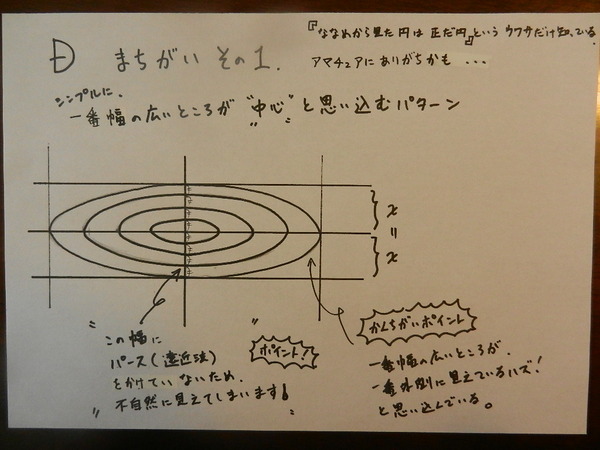 『ななめから見た円は正だ円』というウワサだけ知っている。
アマチュアにありがちかも...
D まちがいその1.
シンプルに、
一番幅の広いところが"中心"と思い込むパターン
x
=
x
"この幅に
パース(遠近法)
をかけていないため、
不自然に見えてしまいます!"
ポイント!
かんちがいポイント
一番幅の広いところが、
一番外側に見えているハズ!
と思い込んでいる。